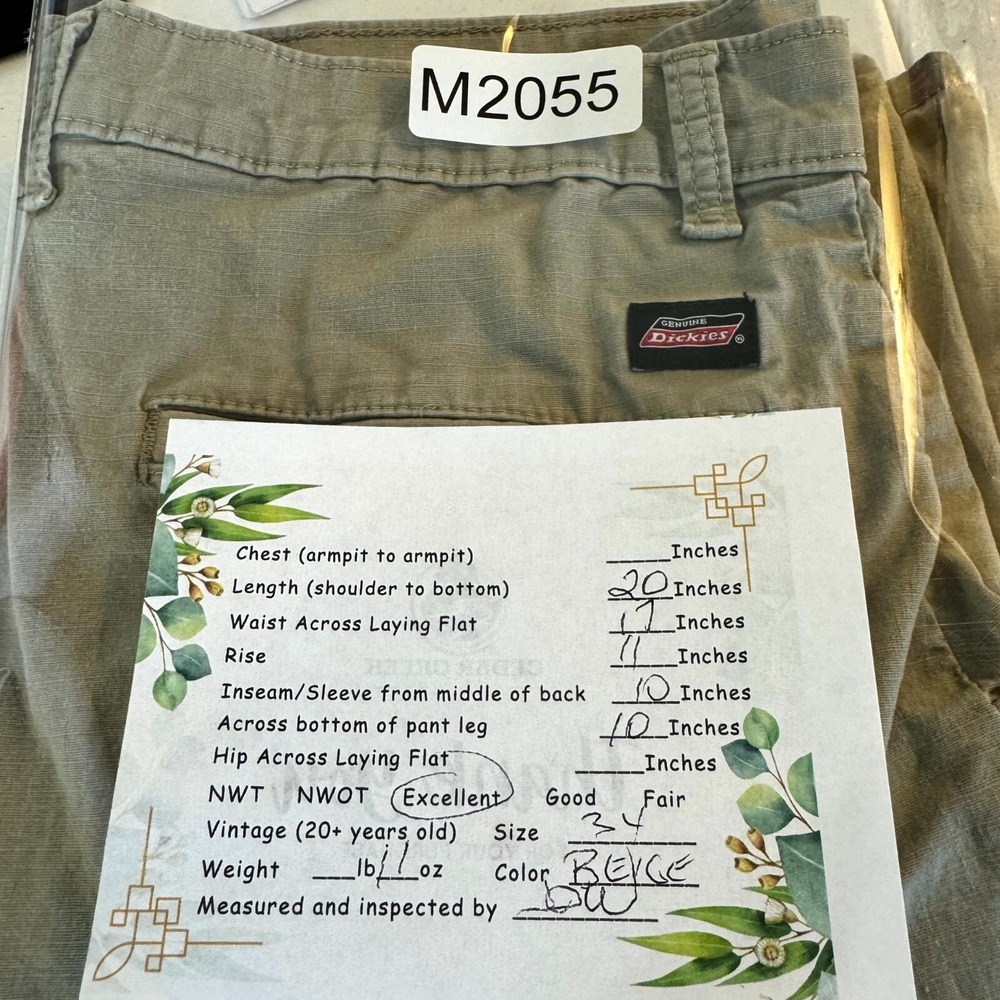 M2055
GENUINE
Dickies
Chest (armpit to armpit) ____Inches
Length (shoulder to bottom) 20 Inches
Waist Across Laying Flat 17 Inches
Rise 11 Inches
Inseam/Sleeve from middle of back 10 Inches
Across bottom of pant leg 10 Inches
Hip Across Laying Flat ____Inches
NWT NWOT Excellent Good Fair
Vintage (20+ years old) Size 34
Weight ___lb 11 oz Color BEIGE
Measured and inspected by DW